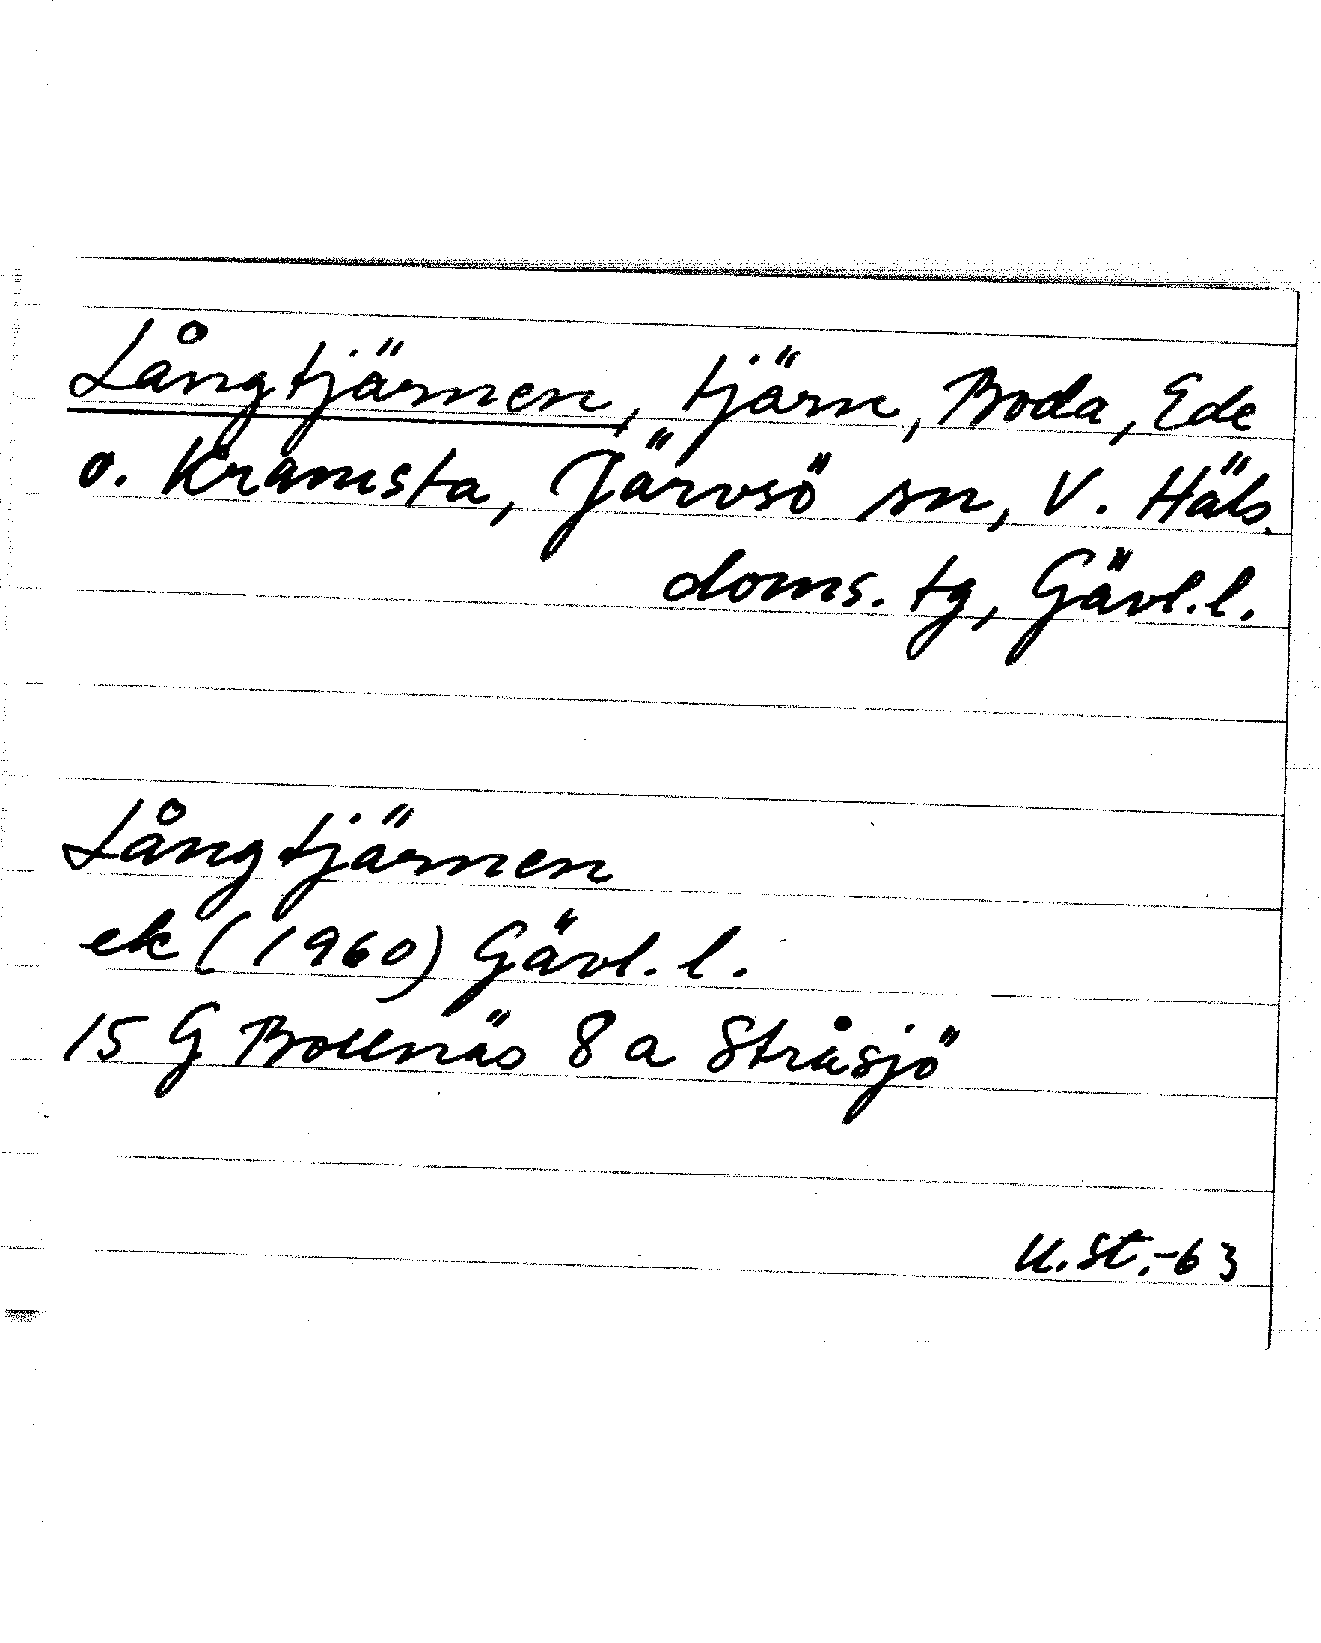 Långtjärnen, tjärn, Boda, Ede
o. Kramsta, Järvsö sn, V. Häls.
doms. tg, Gävl.l.
Långtjärnen
ek (1960) Gävl. l.
15 G Bollnäs 8 a Stråsjö
U.St.-63